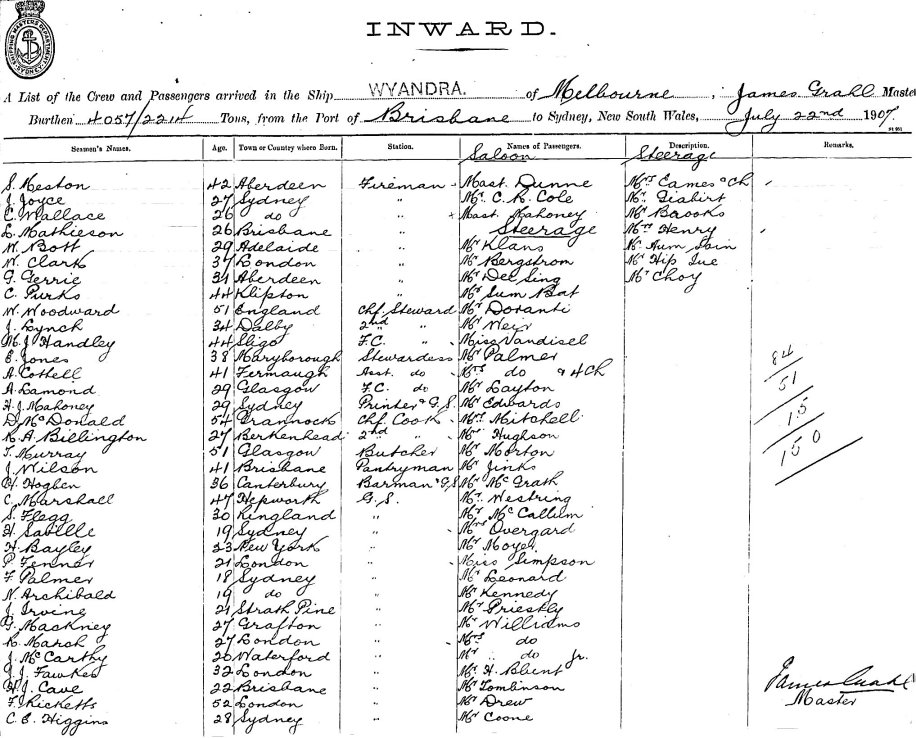 SHIPPING MASTERS DEPARTMENT SYDNEY
INWARD.
A List of the Crew and Passengers arrived in the Ship WYANDRA. of Melbourne, James Grahl Master
Burthen 4057/2214 Tons, from the Port of Brisbane to Sydney, New South Wales, July 22nd 1907.
Seamen's Names. Age. Town or Country where Born. Station. Names of Passengers. Description. Remarks.
Saloon Steerage
S. Meston 42 Aberdeen Fireman Mast. Dunne Mrs Eames & Ch
J. Joyce 27 Sydney " Mr. C. R. Cole Mr.
C. Wallace 26 do " Mast. Mahoney Mr Brooks
L. Mathieson 26 Brisbane " Steerage Mrs Henry
W. Bott 29 Adelaide " Mr Klans Mr Hum
W. Clark 37 London " Mr Bergstrom Mr Hip Sue
G. Gerrie 31 Aberdeen " Mr Del Sing Mr Choy
C. Purks 44 Klipton " Mr Sum Bat
W. Woodward 51 England Chf. Steward Mr Doranti
J. Lynch 34 Dalby 2nd " Mr Weir
M. J. Handley 44 Sligo F.C. " Miss Vandisel
E. Jones 38 Maryborough Stewardess Mr Palmer
A. Cottell 41 Fermaugh Asst. do Mrs do & 4 Ch 84
A. Lamond 29 Glasgow F.C. do Mr Layton 51
H. J. Mahoney 29 Sydney Printer & G.S. Mr Edwards
D. McDonald 54 Grannock Chf. Cook Mrs Mitchell 15
R. A. Billington 27 Berkenhead 2nd " Mr Hughson
T. Murray 51 Glasgow Butcher Mr Morton 150
J. Wilson 41 Brisbane Pantryman Mr Jinks
H. Hogben 36 Canterbury Barman & G.S. Mr McGrath
C. Marshall 47 Hepworth G.S. Mr. Westring
S. Flegg 30 Ringland " Mr McCallum
H. Saville 19 Sydney " Mrs Overgard
H. Bayley 23 New York " Mr Moyes
P. Fenner 21 London " Miss Simpson
F. Palmer 18 Sydney " Mr Leonard
N. Archibald 19 do " Mr Kennedy
J. Irvine 21 Strath Pine " Mr Priestly
G. Mackney 27 Grafton " Mr Williams
R. Marsh 27 London " Mrs do
J. McCarthy 20 Waterford " Mr " do Jr.
J. J. Fawkes 32 London " Mr. H. Blunt
H. J. Cave 22 Brisbane " Mr Tomlinson James Grahl
F. Ricketts 52 London " Mr Drew Master
C. E. Higgins 28 Sydney " Mr Coone